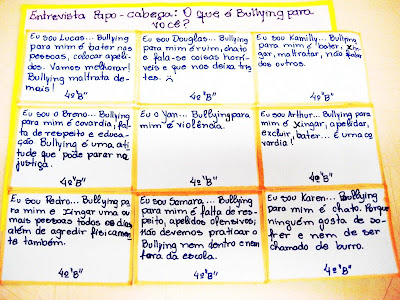 Entrevista Papo-cabeça: O que é Bullying para
você?
Eu sou Lucas... Bullying
para mim é bater nas
pessoas, colocar apeli-
dos. Vamos melhorar!
Bullying maltrata de-
mais!
4º "B"
Eu sou Douglas... Bullying
para mim é ruim, chato
e fala-se coisas horrí-
veis e que nos deixa tris
tes. :(
4º "B"
Eu sou Kamilly... Bullying
para mim é bater, xin
gar, maltratar, não
dos outros.
4º "B"
Eu sou o Breno... Bullying
para mim é covardia, fal-
ta de respeito e educa-
ção Bullying é uma ati-
tude que pode parar na
justiça.
4º "B"
Eu o Yan... Bullying para
mim é violência.
4º "B"
Eu sou Arthur... Bullying
para mim é xingar, apelidar,
excluir, bater... É uma co
vardia!
4º "B"
Eu sou Pedro... Bullying pa
ra mim é xingar uma ou
mais pessoas todos os dias
além de agredir fisicamen
te também.
4º "B"
Eu sou Samara... Bullying
para mim é falta de res-
peito, apelidos ofensivos,
não devemos praticar o
Bullying nem dentro e nem
fora da escola.
4º "B"
Eu sou Karen... Bullying
para mim é chato. Porque
ninguém gosta de so-
frer e nem de ser
chamado de burro.
4º "B"